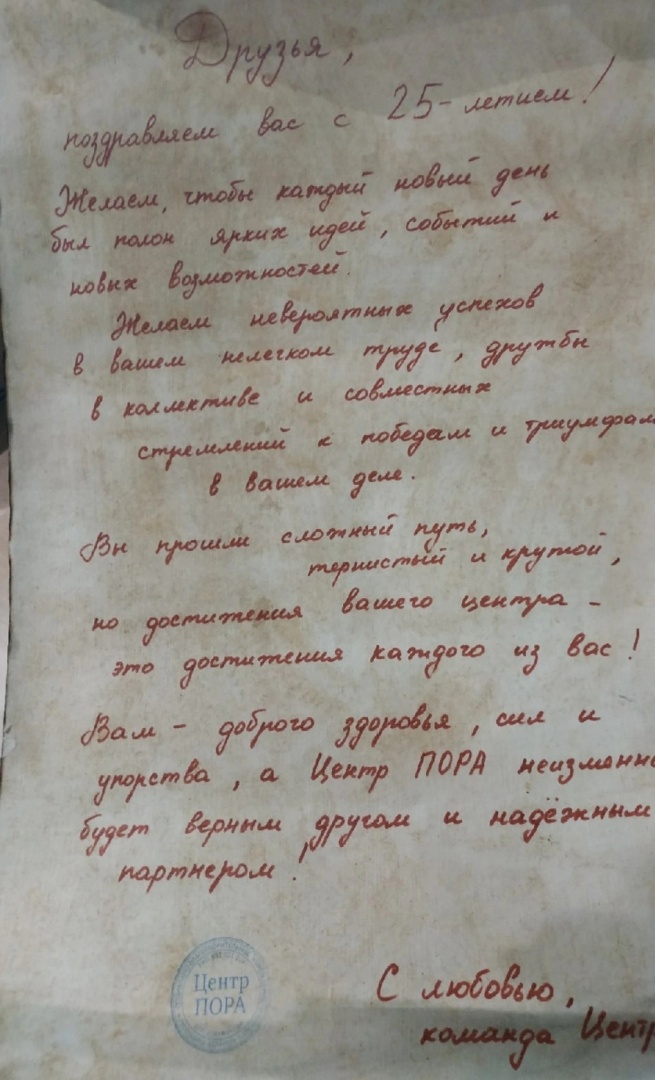 Друзья,
поздравляем вас с 25-летием!
Желаем, чтобы каждый новый день
был полон ярких идей, событий и
новых возможностей.
Желаем невероятных успехов
в вашем нелегком труде, дружбы
в коллективе и совместных
стремлений к победам и триумфам
в вашем деле.
Вы прошли сложный путь,
тернистый и крутой,
но достижения вашего центра -
это достижения каждого из вас!
Вам - доброго здоровья, сил и
упорства, а Центр ПОРА неизменно
будет верным другом и надёжным
партнером!
Центр
ПОРА
С любовью,
команда Центр